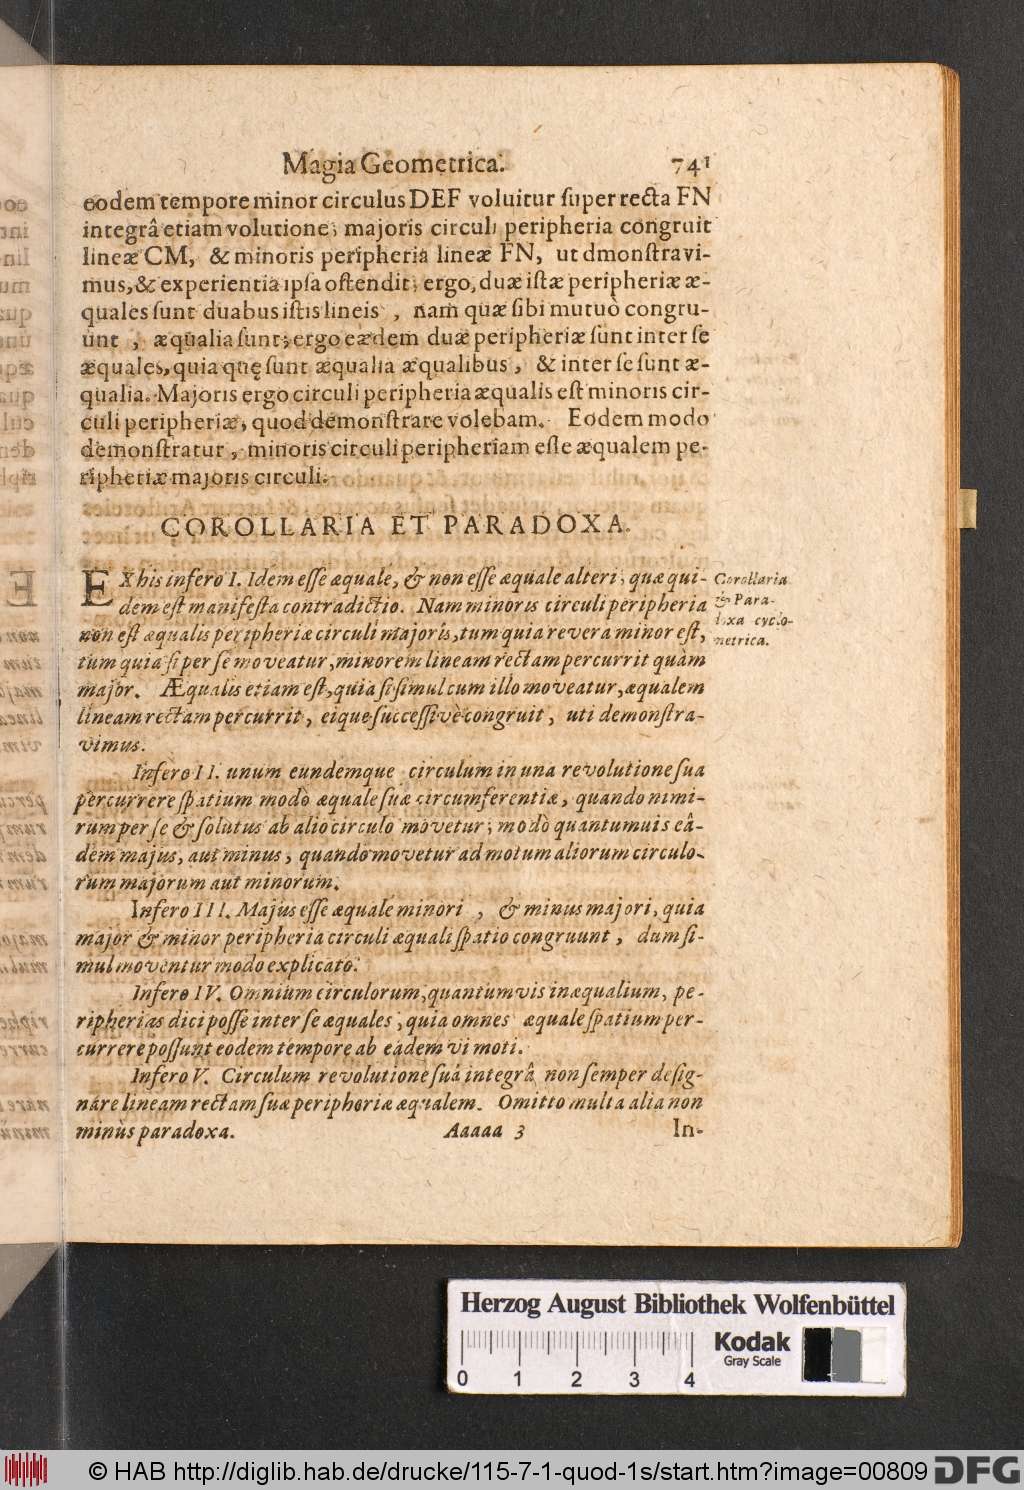 Magia Geometrica. 741
eodem tempore minor circulus DEF voluitur ſuper recta FN
integrâ etiam volutione; majoris circuli peripheria congruit
lineæ CM, & minoris peripheria lineæ FN, ut dmonſtravi-
mus, & experientia ipſa oſtendit; ergo, duæ iſtæ peripheriæ æ-
quales ſunt duabus iſtis lineis, nam quæ ſibi mutuò congru-
unt, æqualia ſunt; ergo eædem duæ peripheriæ ſunt inter ſe
æquales, quia quę ſunt æqualia æqualibus, & inter ſe ſunt æ-
qualia. Majoris ergo circuli peripheria æqualis eſt minoris cir-
culi peripheriæ, quod demonſtrare volebam. Eodem modo
demonſtratur, minoris circuli peripheriam eſſe æqualem pe-
ripheriæ majoris circuli.
COROLLARIA ET PARADOXA.
EX his infero I. Idem eſſe æquale, & non eſſe æquale alteri, quæ qui-
dem eſt manifeſta contradictio. Nam minoris circuli peripheria
non eſt æqualis peripheriæ circuli majoris, tum quia revera minor eſt,
tum quia ſi per ſe moveatur, minorem lineam rectam percurrit quàm
major. Æqualis etiam eſt, quia ſi ſimul cum illo moveatur, æqualem
lineam rectam percurrit, eique ſucceſſivè congruit, uti demonſtra-
vimus.
Corollaria
& Para-
doxa cyclo-
metrica.
Infero II. unum eundemque circulum in una revolutione ſua
percurrere ſpatium modò æquale ſuæ circumferentiæ, quando nimi-
rum per ſe & ſolutus ab alio circulo movetur; modò quantumuis eâ-
dem majus, aut minus, quando movetur ad motum aliorum circulo-
rum majorum aut minorum.
Infero III. Majus eſſe æquale minori, & minus majori, quia
major & minor peripheria circuli æquali ſpatio congruunt, dum ſi-
mul moventur modo explicato.
Infero IV. Omnium circulorum, quantumvis inæqualium, pe-
ripherias dici poſſe inter ſe æquales, quia omnes æquale ſpatium per-
currere poſſunt eodem tempore ab eadem vi moti.
Infero V. Circulum revolutione ſuâ integrâ non ſemper deſig-
nare lineam rectam ſuæ peripheriæ æqualem. Omitto multa alia non
minùs paradoxa. Aaaaa 3 In-
Herzog August Bibliothek Wolfenbüttel
0 1 2 3 4
Kodak
Gray Scale
© HAB http://diglib.hab.de/drucke/115-7-1-quod-1s/start.htm?image=00809 DFG